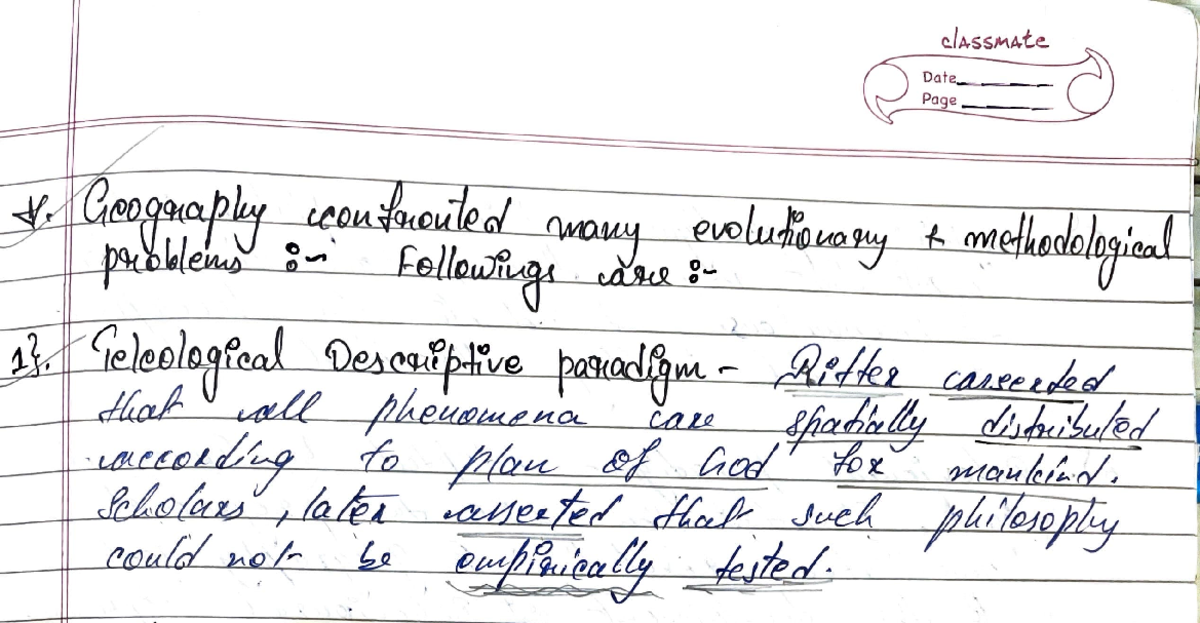 classmate
Date
Page
*. Geography confronted many evolutionary & methodological
problems :- Followings are :-
1}. Teleological Descriptive paradigm - Ritter asserted
that all phenomena are spatially distributed
according to plan of God for mankind.
Scholars, later asserted that such philosophy
could not be empirically tested.